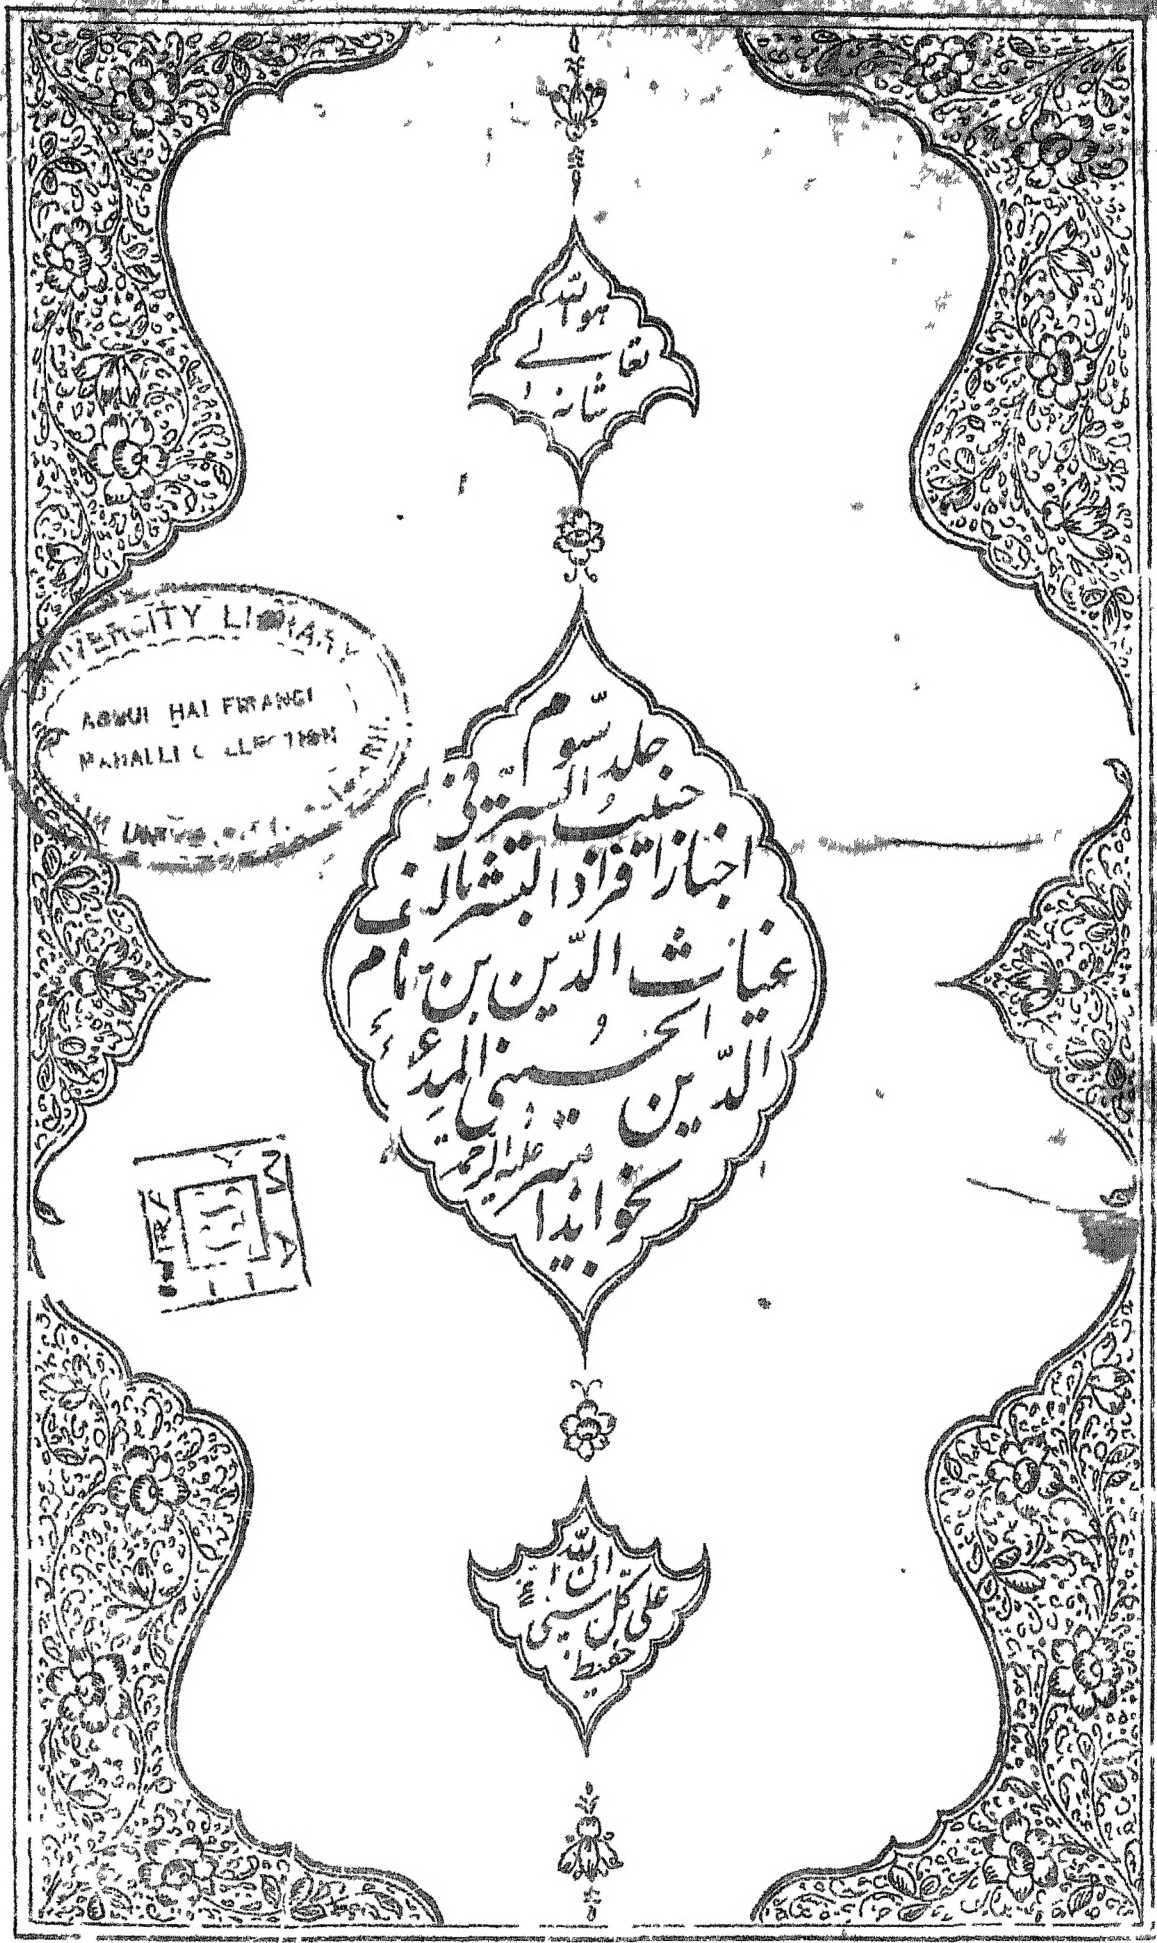 هو الله
تعالى
شانه
UNIVERSITY LIBRARY
ABDUL HAI FIRANGI
MAHALLI COLLECTION
جلد سوم
حبیب السیر فی
اخبار افراد البشر تالیف
غیاث الدین بن همام
الدین الحسینی المدعو
بخواند امیر علیه الرحمة
ان الله
علی کل شیئ
حفیظ